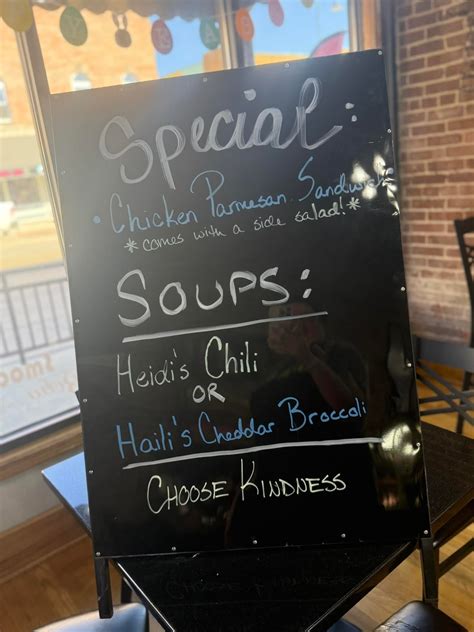 Special:
• Chicken Parmesan Sandwich
*comes with a side salad!*
SOUPS:
Heidi's Chili
OR
Haili's Cheddar Broccoli
CHOOSE KINDNESS